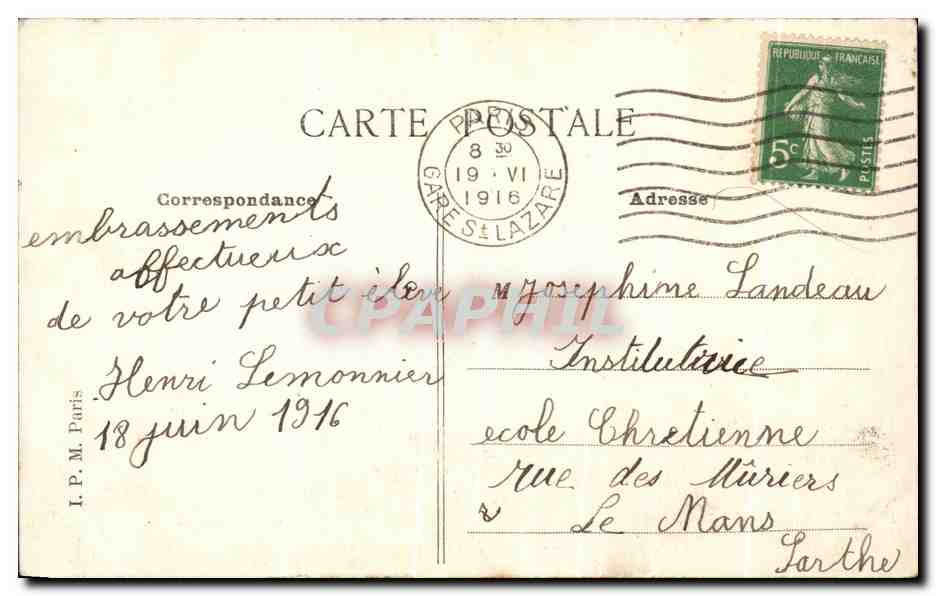 RÉPUBLIQUE FRANÇAISE
5c
POSTES
CARTE POSTALE
PARIS
8 30
19 · VI
1916
GARE St LAZARE
Correspondance
Adresse
embrassements
affectueux
de votre petit élève
Henri Lemonnier
18 juin 1916
M Josephine Landeau
Institutrice
école Chretienne
rue des Mûriers
Le Mans
Sarthe
I. P. M. Paris
CPAPHIL